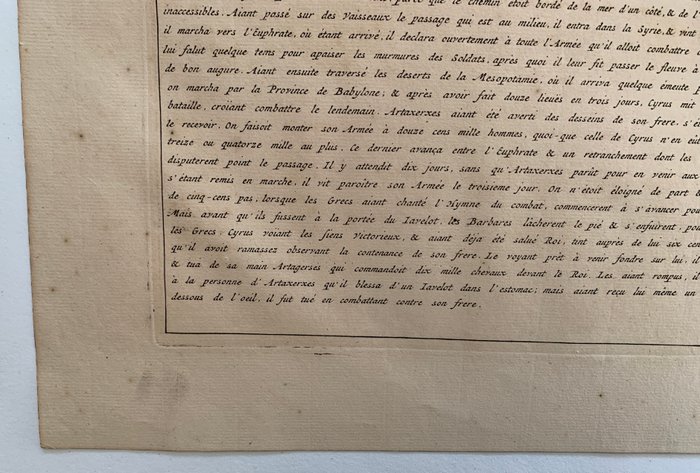 parce que le chemin étoit bordé de la mer d'un côté, & de l
inaccessibles. Aiant passé sur des Vaisseaux le passage qui est au milieu, il entra dans la Syrie, & vint
il marcha vers l'Euphrate, où étant arrivé, il declara ouvertement à toute l'Armée qu'il alloit combattre
lui falut quelque tems pour apaiser les murmures des Soldats, après quoi il leur fit passer le fleuve à
de bon augure. Aiant ensuite traversé les deserts de la Mesopotamie, où il arriva quelque émeute p
on marcha par la Province de Babylone; & après avoir fait douze lieuës en trois jours, Cyrus mit
bataille, croiant combattre le lendemain. Artaxerxes aiant été averti des desseins de son frere, s'é
le recevoir. On faisoit monter son Armée à douze cens mille hommes, quoi-que celle de Cyrus n'en eût
treize ou quatorze mille au plus. Ce dernier avança entre l'Euphrate & un retranchement dont les
disputerent point le passage. Il y attendit dix jours, sans qu'Artaxerxes parût pour en venir aux
s'étant remis en marche, il vit paroître son Armée le troisième jour. On n'étoit éloigné de part &
de cinq-cens pas, lorsque les Grecs aiant chanté l'Hymne du combat, commencerent à s'avancer pou
Mais, avant qu'ils fussent à la portée du Iavelot, les Barbares lâcherent le pié & s'enfuirent, pou
les Grecs; Cyrus voiant les siens Victorieux, & aiant déja été salué Roi, tint auprès de lui six cen
qu'il avoit ramassez observant la contenance de son frere. Le voyant prêt à venir fondre sur lui, il
& tua de sa main Artagerses qui commandoit dix mille chevaux devant le Roi. Les aiant rompus, il
à la personne d'Artaxerxes qu'il blessa d'un Iavelot dans l'estomac; mais aiant reçu lui même un
dessous de l'oeil, il fut tué en combattant contre son frere.